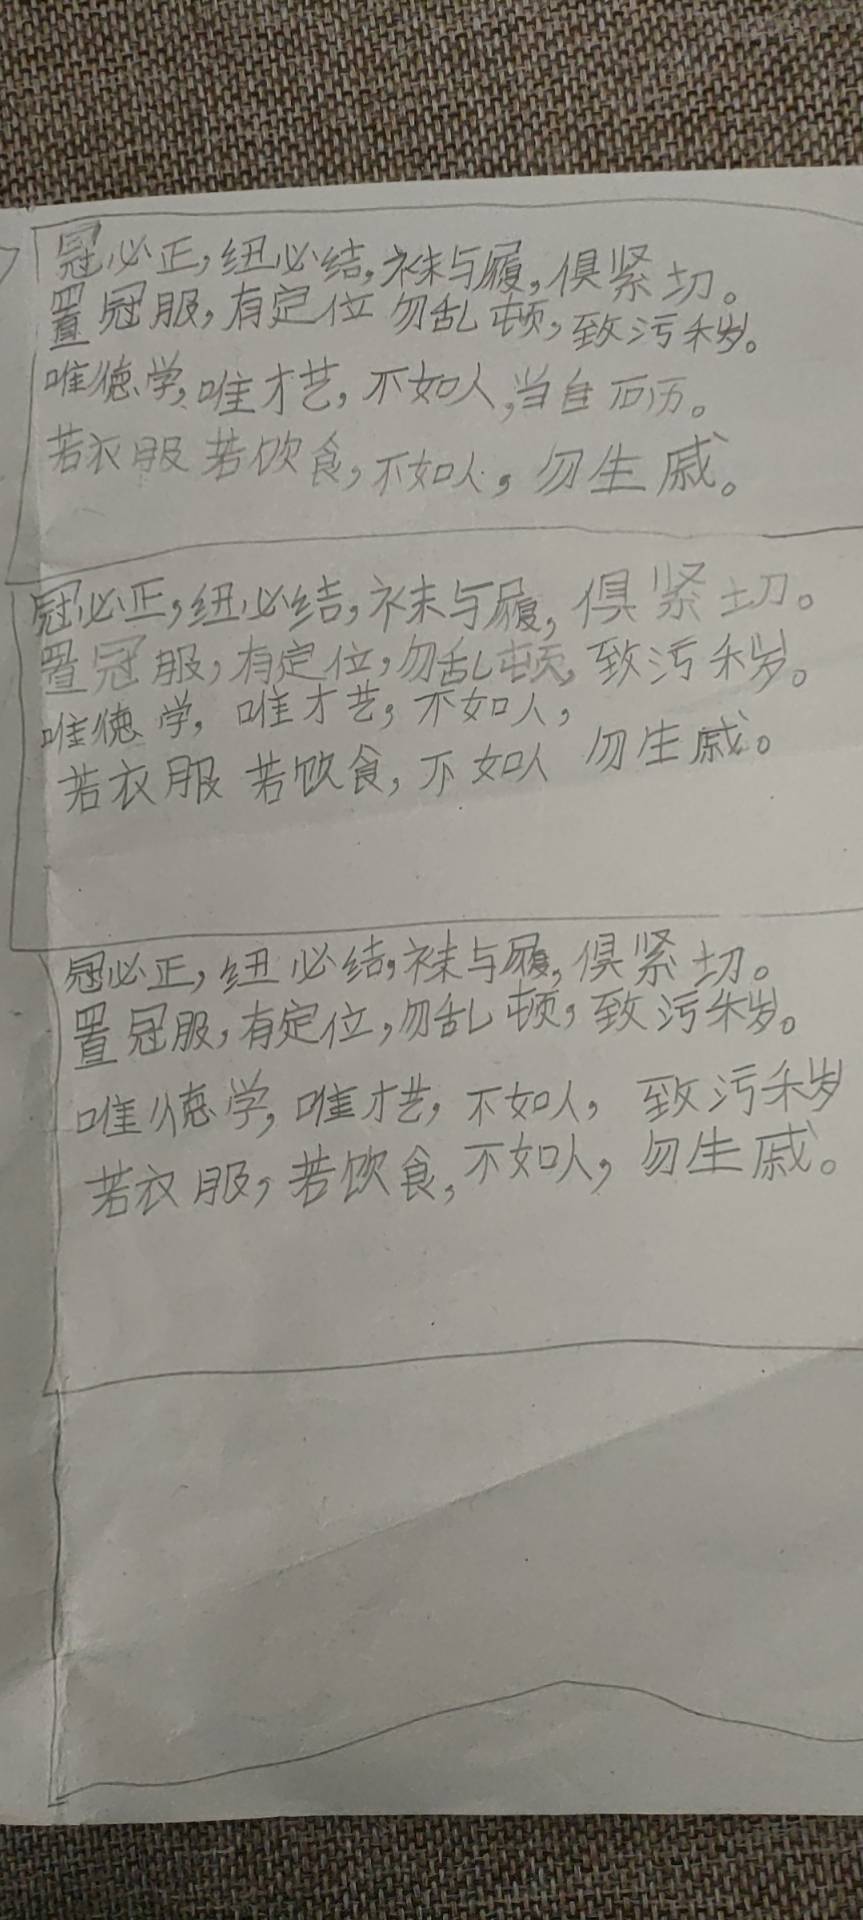 冠必正,纽必结,袜与履,俱紧切。
置冠服,有定位 勿乱顿,致污秽。
唯德学,唯才艺,不如人,当自砺。
若衣服 若饮食,不如人,勿生戚。
冠必正,纽必结,袜与履,俱紧切。
置冠服,有定位,勿乱顿,致污秽。
唯德学,唯才艺,不如人,
若衣服 若饮食,不如人 勿生戚。
冠必正,纽必结,袜与履,俱紧切。
置冠服,有定位,勿乱顿,致污秽。
唯德学,唯才艺,不如人,致污秽
若衣服,若饮食,不如人,勿生戚。